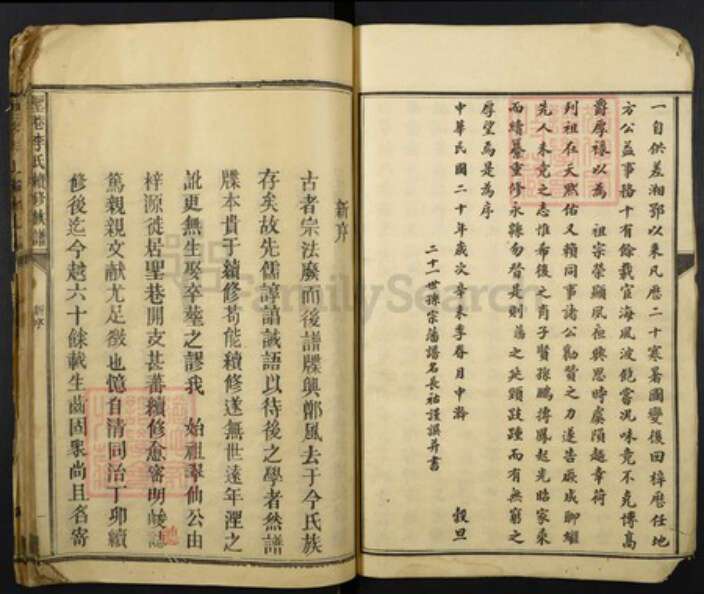 一自供差湘鄂以來凡歷二十寒暑國變後回梓歷任地
方公益事務十有餘載宦海風波飽嘗況味竟不克博高
爵厚祿以為 祖宗榮顯夙夜興思時虞隕越幸荷
列祖在天默佑又賴同事諸公勷贊之力遂告厥成聊繼
先人未竟之志惟希後之肖子賢孫鵬摶鳳起光昭家乘
而續纂重修永綿勿替是則蕩之延頸跂踵而有無窮之
厚望焉是為序
中華民國二十年歲次辛未季春月中澣 穀旦
二十一世孫宗蕩譜名長祜謹譔并書
新序
古者宗法廢而後譜牒興鄭風去于今氏族
存矣故先儒諄諄誡語以待後之學者然譜
牒本貴于續修苟能續修遂無世遠年湮之
訛更無生娶卒塟之謬我 始祖翠仙公由
梓源徙居聖巷開支甚蕃續修愈審明畯誌
篤親親文獻尤足徵也憶自清同治丁卯續
修後迄今越六十餘載生齒固衆尚且名寄
聖巷李氏續修族譜
新序
FamilySearch